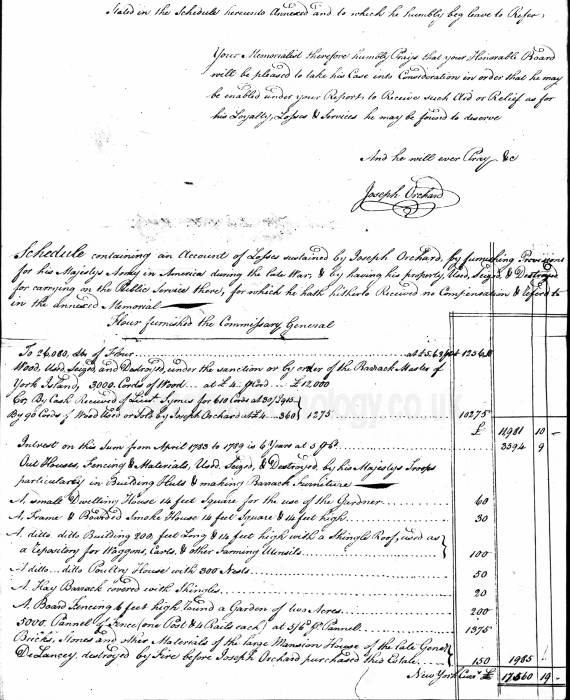 Stated in the Schedule hereunto Annexed and to which he humbly beg leave to Refer,
Your Memorialist therefore humbly Prays that your Honorable Board
will be pleased to take his Case into Consideration in order that he may
be enabled under your Report, to Receive such Aid or Relief as for
his Loyalty, Losses & Services he may be found to deserve
And he will ever Pray &c
Joseph Orchard
Schedule containing an Account of Losses sustained by Joseph Orchard, by furnishing Provisions
for his Majestys Army in America during the late War, & by having his property Used, Seized, & Destroyed
for carrying on the Public Service there, for which he hath hitherto Received no Compensation & refer'd to
in the annexed Memorial
Flour furnished the Commissary General
To 26,080, lbs of Flour at
Wood, Used, Seized, and Destroyed, under the sanction or by order of the Barrack Master of
York Island, 3000, Cords of Wood at £4 .. £12,000
Cr, By Cash Received of Lieut Symes for 610 Cords at 30/ £915
By 90 Cords of Wood Used or Sold by Joseph Orchard at £4 360 } 1275 10275
£ 11981 10 -
Interest on this Sum from April 1783 to 1789 is 6 Years at 5 3594 9
Out Houses, Fencing & Materials, Used, Seized, & Destroyed, by his Majestys Troops
particularly in Building Huts & making Barrack Furniture
A, small Dwelling House 14 feet Square for the use of the Gardner 60
A, Frame & Boarded Smoke House 14 feet Square & 14 feet high 30
A, ditto ditto Building 200, feet Long & 14 feet high with a Shingle Roof, used as
a Repository for Waggons, Carts, & other Farming Utensils } 100
A ditto ditto Poultry House with 300 Nests 50
A Hay Barrack covered with Shingles 20
A Board Fencing 6 feet high round a Garden of two Acres 200
5000 Pannel of Fence (one Post & 4 Rails each) at 5/6 Pr Pannel 1375
Bricks, Stones and other Materials of the large Mansion House of the late Genl
DeLancey, destroyed by Fire before Joseph Orchard purchased this Estate 150 1985
New York Curr £ 17560 19 -